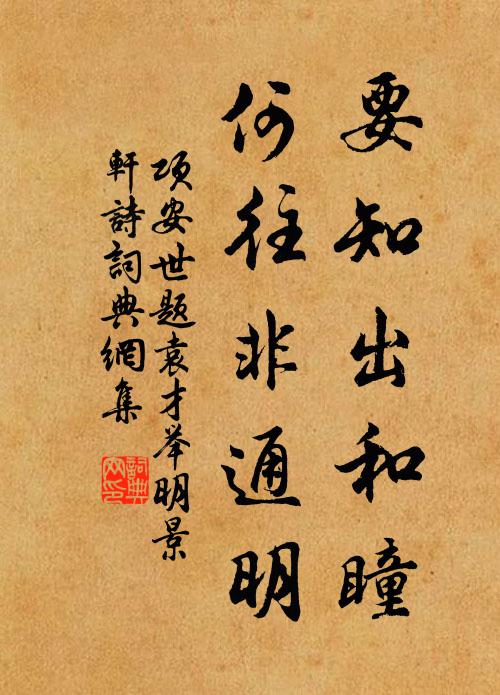 要知出和瞳
何往非通明
项安世题袁才举明景
軒詩詞典網集
詞典网印